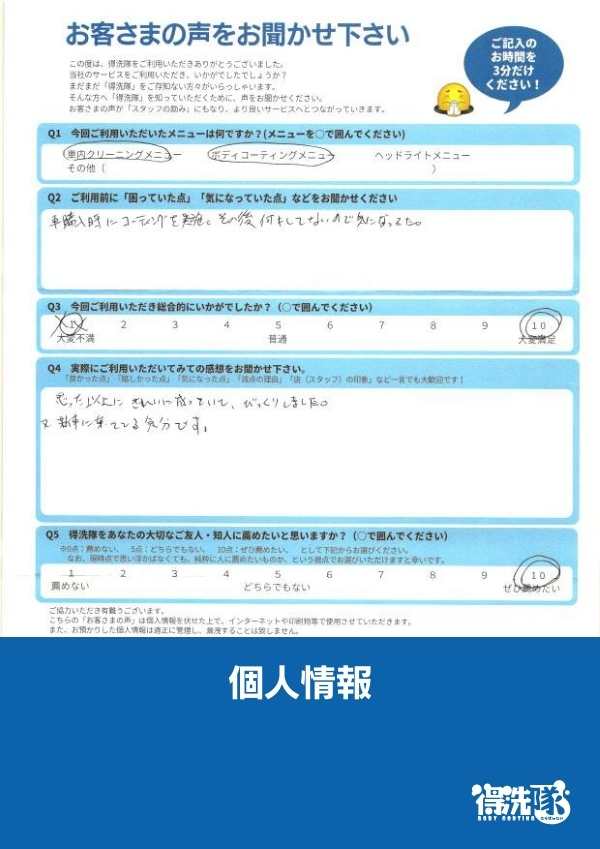 お客さまの声をお聞かせ下さい
ご記入の
お時間を
3分だけ
ください！
この度は、得洗隊をご利用いただきありがとうございました。
当社のサービスをご利用いただき、いかがでしたでしょうか？
まだまだ「得洗隊」をご存知ない方々がいらっしゃいます。
そんな方へ「得洗隊」を知っていただくために、声をお聞かせください。
お客さまの声が「スタッフの励み」にもなり、より良いサービスへとつながっていきます。
Q1 今回ご利用いただいたメニューは何ですか？(メニューを○で囲んでください)
車内クリーニングメニュー ボディコーティングメニュー ヘッドライトメニュー
その他（ ）
Q2 ご利用前に「困っていた点」「気になっていた点」などをお聞かせください
車購入時にコーティングを実施。その後何もしてないので気になってた。
Q3 今回ご利用いただき総合的にいかがでしたか？（○で囲んでください）
1 2 3 4 5 6 7 8 9 10
大変不満 普通 大変満足
Q4 実際にご利用いただいてみての感想をお聞かせ下さい。
「良かった点」「嬉しかった点」「気になった点」「減点の理由」「店（スタッフ）の印象」など一言でも大歓迎です！
思った以上にきれいに成っていて、びっくりしました。
又新車に乗てる気分です。
Q5 得洗隊をあなたの大切なご友人・知人に薦めたいと思いますか？（○で囲んでください）
※0点：薦めない、 5点：どちらでもない、 10点：ぜひ薦めたい、 として下記からお選びください。
なお、現時点で思い浮かばなくても、純粋に人に薦めたいものか、という視点でお選びいただけますと幸いです。
1 2 3 4 5 6 7 8 9 10
薦めない どちらでもない ぜひ薦めたい
ご協力いただき有難うございます。
こちらの「お客さまの声」は個人情報を伏せた上で、インターネットや印刷物等で使用させていただきます。
また、お預かりした個人情報は適正に管理し、漏洩することは致しません。
個人情報
得洗隊
BODY COATING